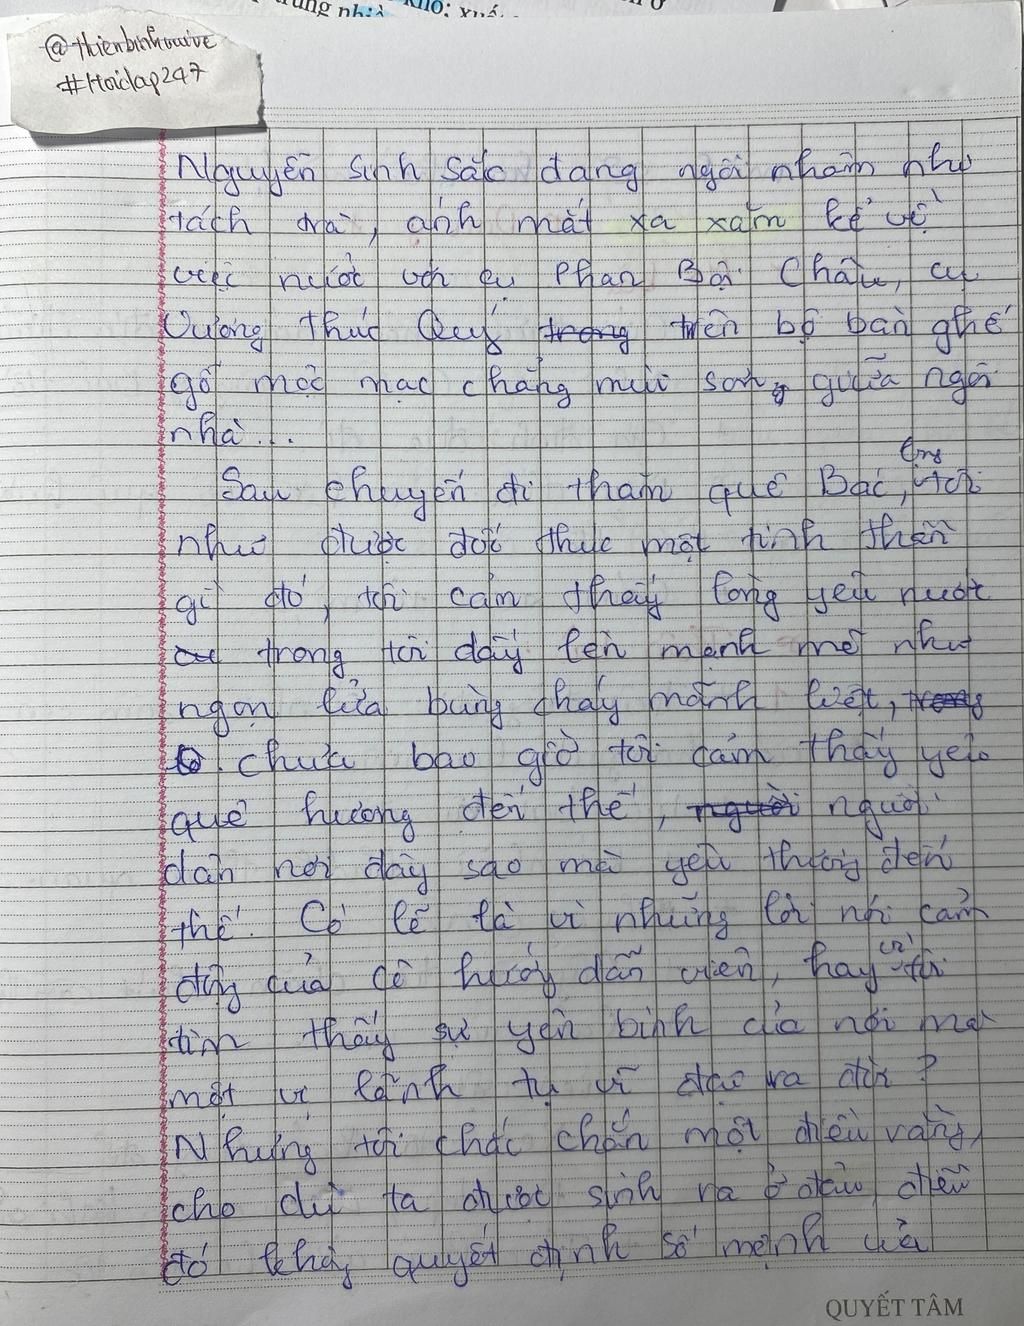 @thienbinhvuive
#Hoidap247
Nguyễn Sinh Sắc đang ngồi nhâm nhi
tách trà, ánh mắt xa xăm kể về
việc nước với cụ Phan Bội Châu, cụ
Vương Thúc Quý trong trên bộ bàn ghế
gỗ mộc mạc chẳng mùi son, giữa ngôi
nhà...
Sau chuyến đi thăm quê Bác, lòng tôi
như được đánh thức một tinh thần
gì đó, tôi cảm thấy lòng yêu nước
trong tôi dấy lên mạnh mẽ như
ngọn lửa bùng cháy mãnh liệt, trong
chưa bao giờ tôi cảm thấy yêu
quê hương đến thế, người người
dân nơi đây sao mà yêu thương đến
thế. Có lẽ là vì những lời nói cảm
động của cô hướng dẫn viên, hay vì tôi
tìm thấy sự yên bình của nơi mà
một vị lãnh tụ vĩ đại ra đời?
Nhưng tôi chắc chắn một điều rằng,
cho dù ta được sinh ra ở đâu, điều
đó không quyết định số mệnh của
QUYẾT TÂM